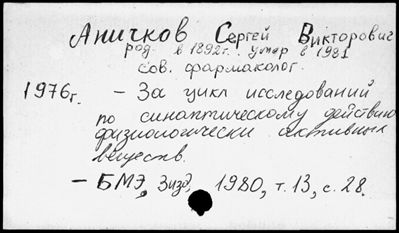 Аничков Сергей Викторович
род. в 1892г. умер в 1981
сов. фармаколог.
1976г. – За цикл исследований
по синаптическому действию
физиологически активных
веществ.
– БМЭ, 3изд, 1980, т. 13, с. 28.